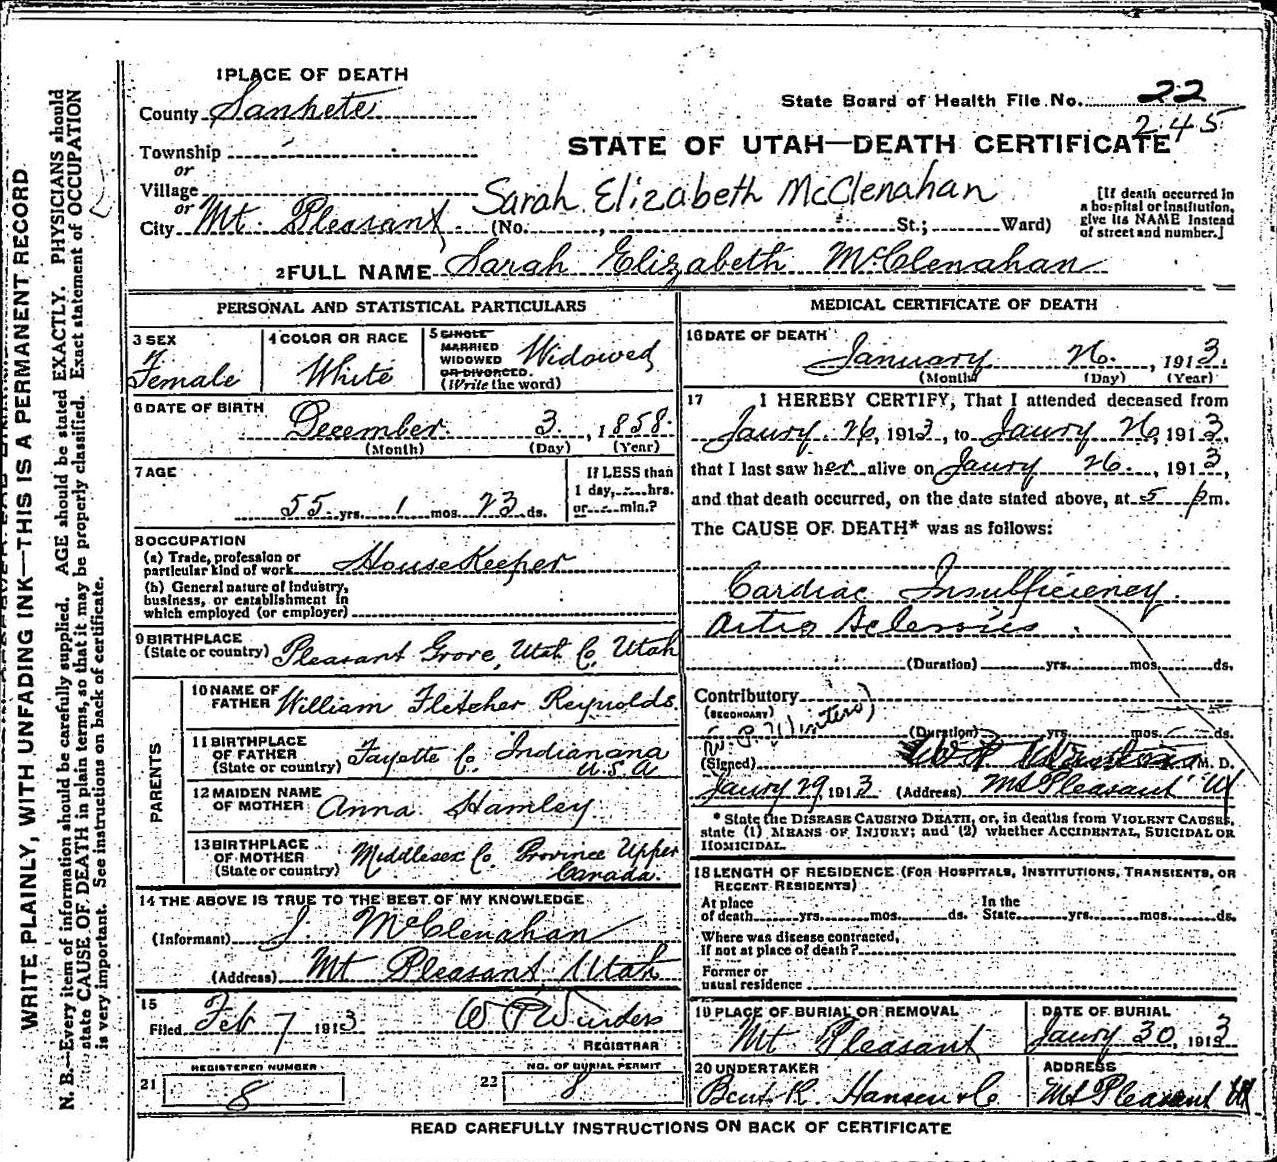 1 PLACE OF DEATH
County Sanpete
State Board of Health File No. 22
245
Township
or
Village
or
City Mt. Pleasant
STATE OF UTAH—DEATH CERTIFICATE
Sarah Elizabeth McClenahan
(No. , St.; Ward)
[If death occurred in
a hospital or institution,
give its NAME instead
of street and number.]
2 FULL NAME Sarah Elizabeth McClenahan
PERSONAL AND STATISTICAL PARTICULARS
3 SEX
Female
4 COLOR OR RACE
White
5 SINGLE
MARRIED
WIDOWED
OR DIVORCED.
(Write the word)
Widowed
6 DATE OF BIRTH
December 3, 1858.
(Month) (Day) (Year)
7 AGE
55 yrs. 1 mos. 23 ds.
If LESS than
1 day, hrs.
or min.?
8 OCCUPATION
(a) Trade, profession or
particular kind of work House Keeper
(b) General nature of industry,
business, or establishment in
which employed (or employer)
9 BIRTHPLACE
(State or country) Pleasant Grove, Utah Co, Utah
PARENTS
10 NAME OF
FATHER William Fletcher Reynolds.
11 BIRTHPLACE
OF FATHER
(State or country) Fayette Co. Indianana
U.S.A
12 MAIDEN NAME
OF MOTHER Anna Hamley.
13 BIRTHPLACE
OF MOTHER
(State or country) Middlesex Co. Province Upper
Canada.
14 THE ABOVE IS TRUE TO THE BEST OF MY KNOWLEDGE
(Informant) J. McClenahan
(Address) Mt Pleasant Utah
15
Filed Feb 7 1913 W P Winters
REGISTRAR
21 REGISTERED NUMBER
8
22 NO. OF BURIAL PERMIT
8
MEDICAL CERTIFICATE OF DEATH
16 DATE OF DEATH
January 26., 1913.
(Month) (Day) (Year)
17 I HEREBY CERTIFY, That I attended deceased from
Jaury. 26, 1913, to Jaury 26, 1913,
that I last saw her alive on Jaury 26., 1913,
and that death occurred, on the date stated above, at 5 p m.
The CAUSE OF DEATH* was as follows:
Cardiac Insufficiency.
Artio Sclerosis.
(Duration) yrs. mos. ds.
Contributory
(SECONDARY)
(W. P. Winters)
(Duration) yrs. mos. ds.
(Signed) M. D.
Jaury 29, 1913 (Address) Mt Pleasant Ut
* State the DISEASE CAUSING DEATH, or, in deaths from VIOLENT CAUSES,
state (1) MEANS OF INJURY; and (2) whether ACCIDENTAL, SUICIDAL OR
HOMICIDAL.
18 LENGTH OF RESIDENCE (FOR HOSPITALS, INSTITUTIONS, TRANSIENTS, OR
RECENT RESIDENTS)
At place
of death yrs. mos. ds.
In the
State yrs. mos. ds.
Where was disease contracted,
if not at place of death?
Former or
usual residence
19 PLACE OF BURIAL OR REMOVAL
Mt Pleasant
DATE OF BURIAL
Jaury 30, 1913
20 UNDERTAKER
Bent. R. Hansen & Co
ADDRESS
Mt Pleasant Ut
READ CAREFULLY INSTRUCTIONS ON BACK OF CERTIFICATE
WRITE PLAINLY, WITH UNFADING INK—THIS IS A PERMANENT RECORD
N. B.—Every item of information should be carefully supplied. AGE should be stated EXACTLY. PHYSICIANS should
state CAUSE OF DEATH in plain terms, so that it may be properly classified. Exact statement of OCCUPATION
is very important. See instructions on back of certificate.